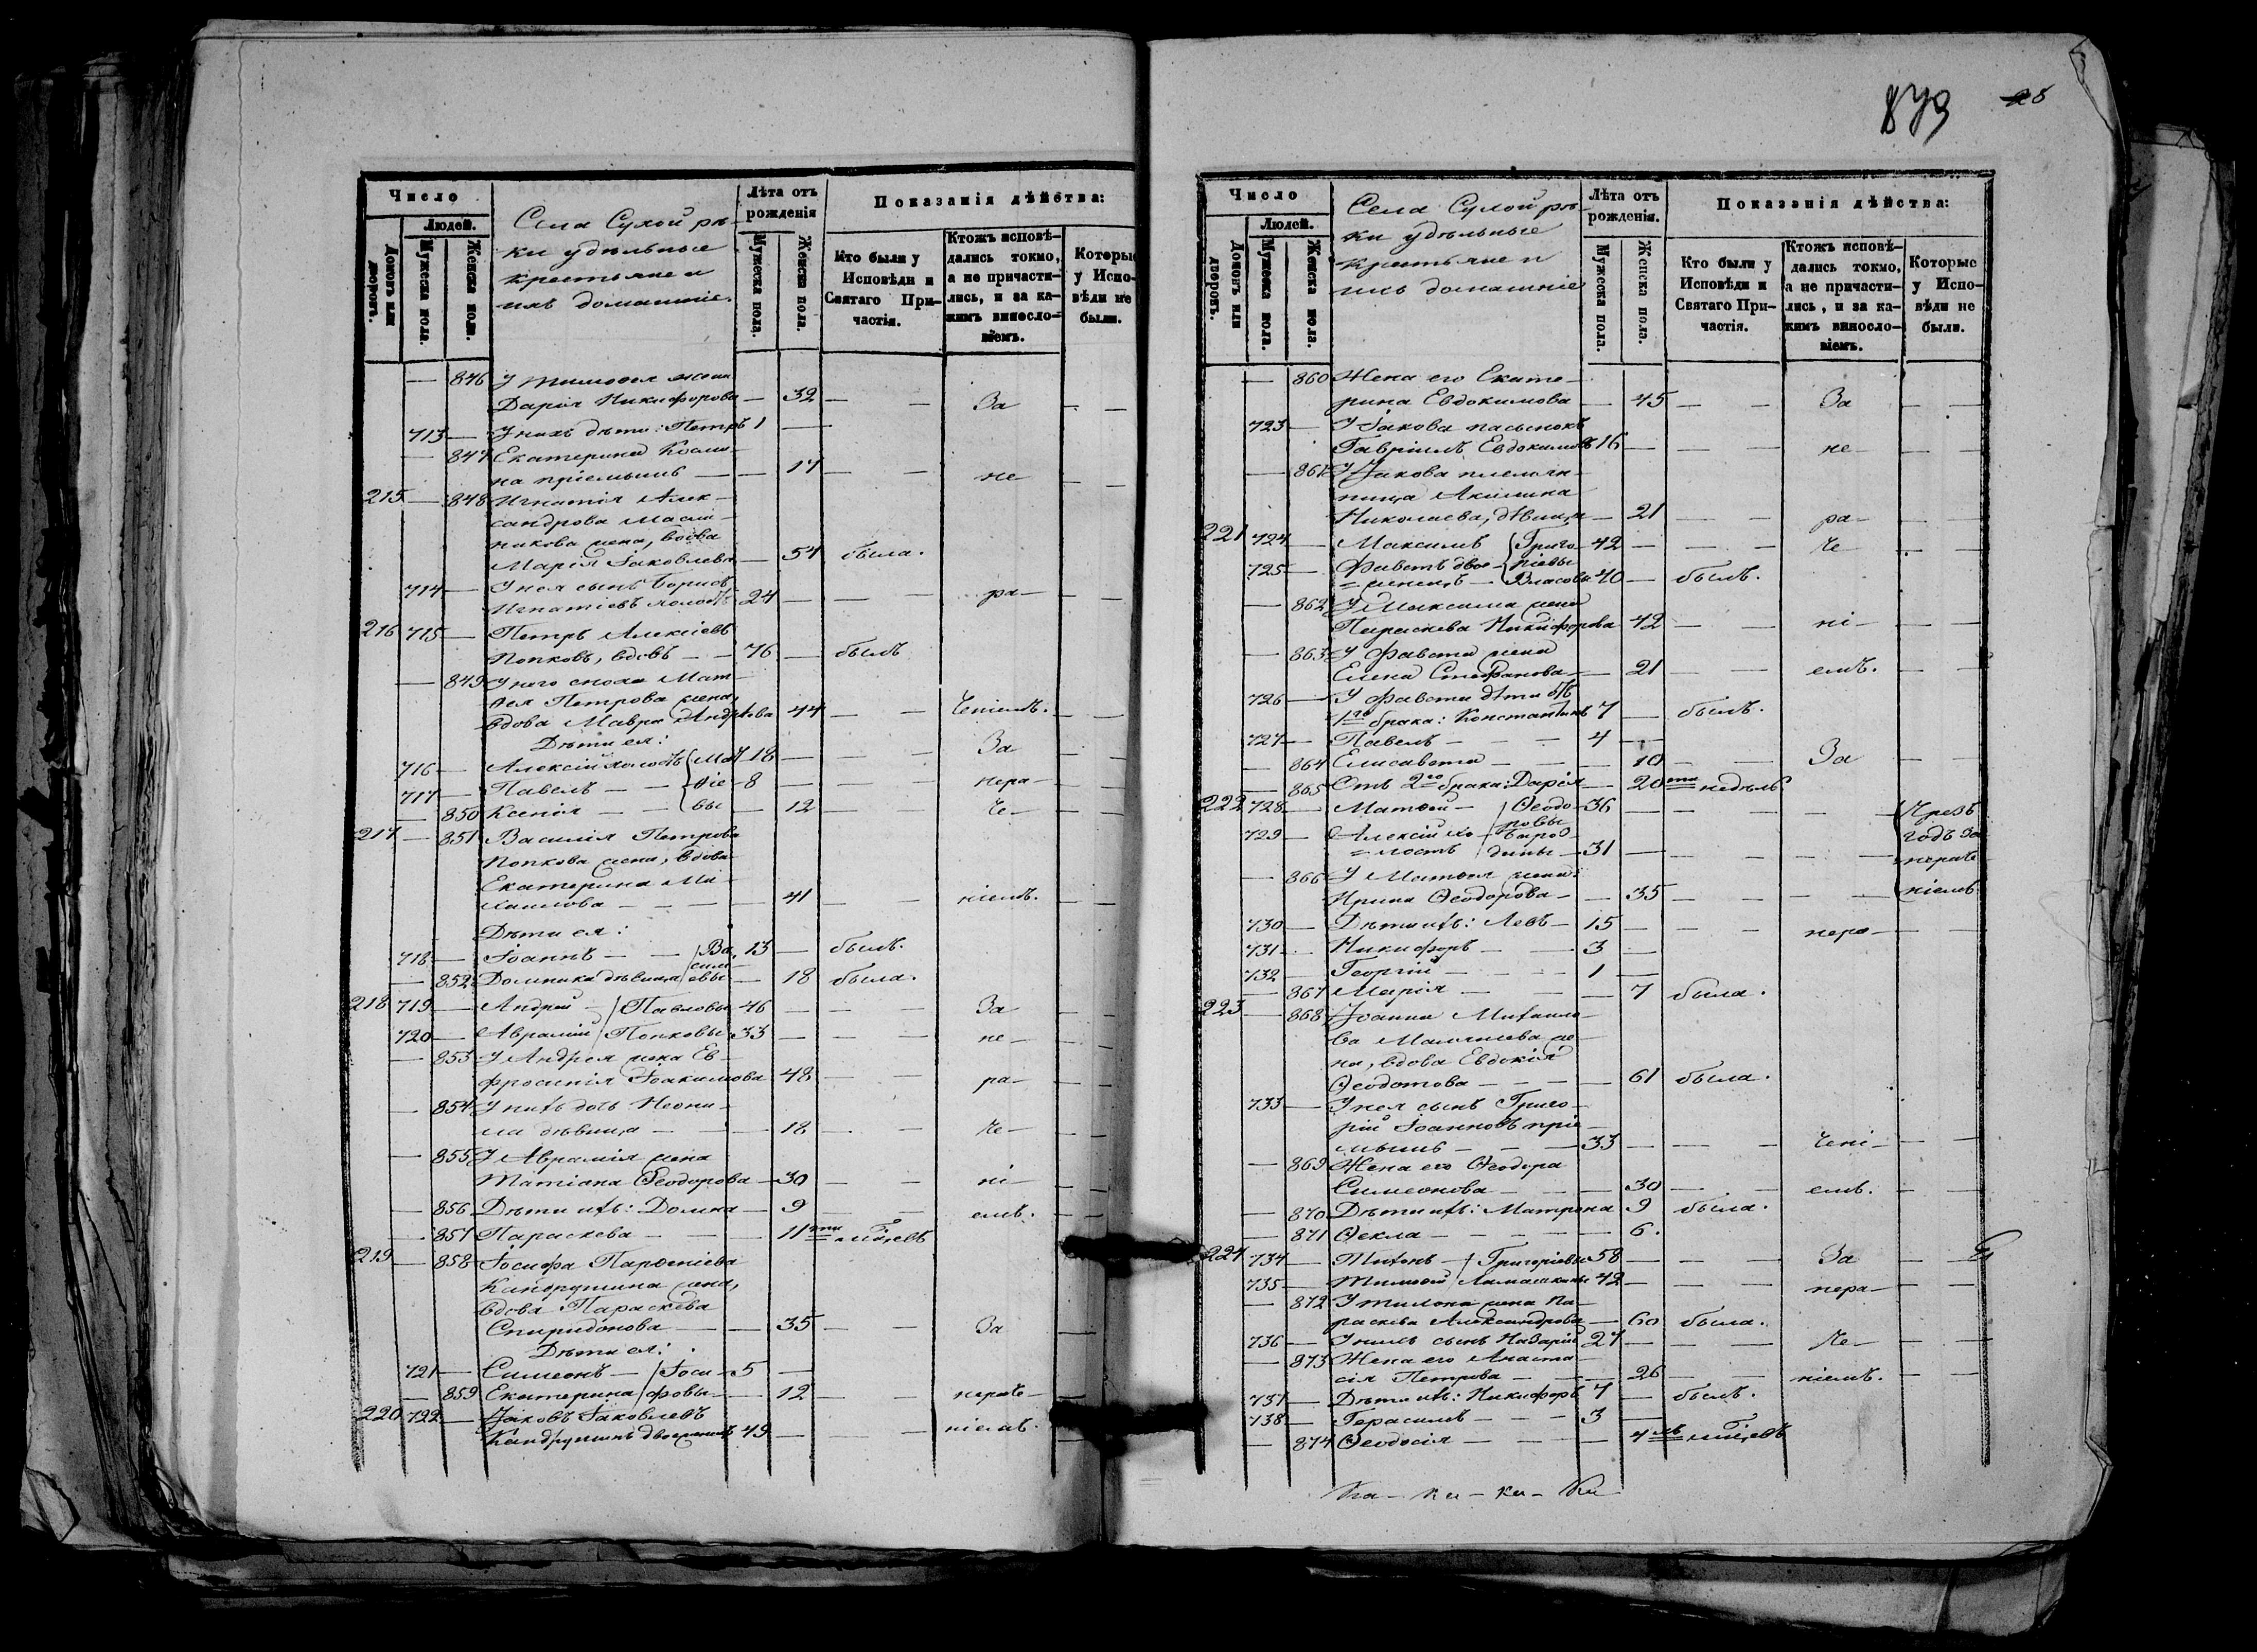 Число
Людей.
Домовъ или дворовъ.
Мужеска пола.
Женска пола.
Села Сухой рѣ-
ки удѣльные
крестьяне и
ихъ домашніе.
Лѣта отъ рожденія
Мужеска пола.
Женска пола.
Показанія дѣйства:
Кто были у Исповѣди и Святаго Причастія.
Ктожъ исповѣдались токмо, а не причастились, и за какимъ винословіемъ.
Которые у Исповѣди не были.
— 846 У Тимоѳея жена
Дарія Никифорова — 32 — — За — —
713 — У нихъ дѣти: Петръ 1 —
— 847 Екатерина Косми-
на пріемышъ — — 17 — — не — —
215 — 848 Игнатія Алек-
сандрова Масли-
никова жена, вдова
Марія Іаковлева — 54 была.
714 — У нея сынъ Борисъ
Игнатіевъ холостъ 24 — — — ра — —
216 715 — Петръ Алексіевъ
Попковъ, вдовъ — — 76 — былъ
— 849 У него сноха Мат-
ѳея Петрова жена,
вдова Мавра Андреева 44 — — Ченіемъ. — —
Дѣти ея:
716 — Алексій холостъ Мат 18 — — — За — —
717 — Павелъ — — ѳіе 8 — — — нера — —
— 850 Ксенія — вы — 12 — — че — —
217 — 851 Василія Петрова
Попкова жена, вдова
Екатерина Ми-
хаилова — — — — 41 — — ніемъ. — —
Дѣти ея:
718 — Іоаннъ — — Ва 13 — былъ.
сили
— 852 Домника дѣвица евы — 18 была.
218 719 — Андрей — Павловы 46 — — — За — —
720 — Аврамій Попковы 33 — — — не — —
— 853 У Андрея жена Ев-
фросинія Іоакимова 48 — — ра — —
— 854 У нихъ дочь Неони-
ла дѣвица — — — 18 — — че — —
— 855 У Аврамія жена
Татіана Ѳеодорова — 30 — — ні — —
— 856 Дѣти ихъ: Домна — 9 — — емъ. — —
— 857 Параскева — — 11ти мѣсяцевъ
219 — 858 Іосифа Парѳеніева
Кандрушина жена,
вдова Параскева
Спиридонова — — 35 — — За —
Дѣти ея:
721 — Симеонъ — Іоси 5 —
— 859 Екатерина фовы — 12 — — нераче — —
220 722 — Іаковъ Іаковлевъ
Кандрушинъ двоеженецъ 49 — — — ніемъ. —
879 25
Число
Людей.
Домовъ или дворовъ.
Мужеска пола.
Женска пола.
Села Сухой рѣ-
ки удѣльные
крестьяне и
ихъ домашніе
Лѣта отъ рожденія.
Мужеска пола.
Женска пола.
Показанія дѣйства:
Кто были у Исповѣди и Святаго Причастія.
Ктожъ исповѣдались токмо, а не причастились, и за какимъ винословіемъ.
Которые у Исповѣди не были.
— 860 Жена его Екате-
рина Евдокимова — 45 — — За — —
723 — У Іакова пасынокъ
Гавріилъ Евдокимовъ 16 — — — не — —
— 861 У Іакова племян-
ница Акилина
Николаева, дѣвица — 21 — — ра — —
221 724 — Максимъ Григо- 42 — — — че — —
725 — Фавстъ двое- ріевы
женецъ — Власовы 40 — былъ.
— 862 У Максима жена
Параскева Никифорова 42 — — ні — —
— 863 У Фавста жена
Елена Стефанова — 21 — — емъ. — —
726 — У Фавста дѣти отъ
1го брака: Константинъ 7 — былъ.
727 — Павелъ — — — 4 —
— 864 Елисавета — — — 10 — — За — —
— 865 Отъ 2го брака: Дарія — 20ти недѣль
222 728 — Матѳей — Ѳеодо- 36 — — — — Чрезъ
729 — Алексій хо- ровы годъ за
лостъ дины 31 — — — — — нераче
— 866 У Матѳея жена
Ирина Ѳеодорова — — 35 — — — — ніемъ
730 — Дѣти ихъ: Левъ — 15 — — — нера — —
731 — Никифоръ — — 3 —
732 — Георгій — — — 1 —
— 867 Марія — — — 7 была.
223 — 868 Іоанна Михаило-
ва же-
на, вдова Евдокія
Ѳеодотова — — — — 61 была.
733 — У нея сынъ Григо-
рій Іоанновъ пріе-
мышъ — — — 33 — — — чені — —
— 869 Жена его Ѳеодора
Симеонова — — — 30 — — емъ. — —
— 870 Дѣти ихъ: Матрона 9 была.
— 871 Ѳекла — — — — 6.
224 734 — Тихонъ — Григоріевы 58 — — — За — —
735 — Тимоѳей 42 — — — нера — —
— 872 У Тихона жена Па-
раскева Александрова — 60 была.
736 — У нихъ сынъ Назарій 27 — — — че — —
— 873 Жена его Анаста-
сія Петрова — — 26 — — ніемъ. — —
737 — Дѣти ихъ: Никифоръ 7 — былъ.
738 — Герасимъ — — — 3 —
— 874 Ѳеодосія — — — 7мь мѣсяцевъ